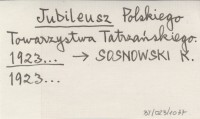 Jubileusz Polskiego
Towarzystwa Tatrzańskiego.
1923... → SOSNOWSKI K.
1923...